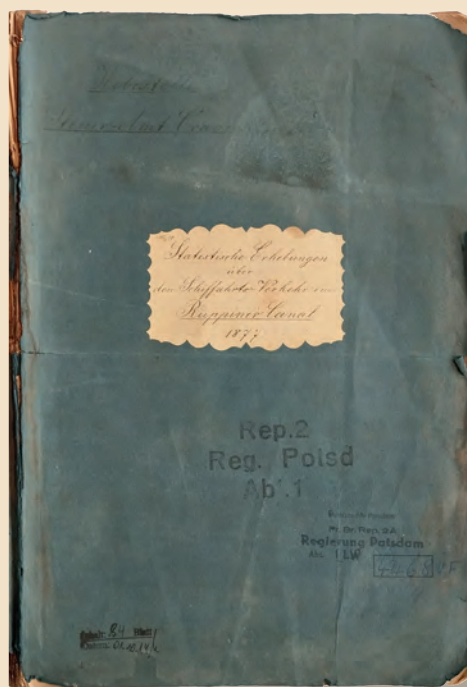 Hebestelle
Statistische Erhebungen
über
den Schiffahrts Verkehr im
Ruppiner Canal
1877
Rep.2
Reg. Potsd
Abt.1
Pr. Br. Rep. 2A
Regierung Potsdam
Abt. I LW
Enthält: 84 Blatt